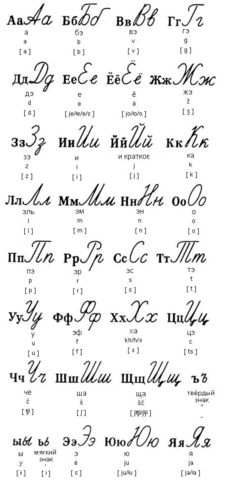 Аа Аа Бб Бб Вв Вв Гг Гг
а бэ вэ гэ
a b v g
[ a ] [ b ] [ v ] [ g ]
Дд Дд Ее Ее Ёё Ёё Жж Жж
дэ е ё жэ
d e ë ž
[ d ] [ je/e/ɛ ] [ jo/o/o ] [ ʒ ]
Зз Зз Ии Ии Йй Йй Кк Кк
зэ и и краткое ка
z i j k
[ z ] [ i ] [ j ] [ k ]
Лл Лл Мм Мм Нн Нн Оо Оо
эль эм эн о
l m n o
[ l ] [ m ] [ n ] [ o ]
Пп Пп Рр Рр Сс Сс Тт Тт
пэ эр эс тэ
p r s t
[ p ] [ r ] [ s ] [ t ]
Уу Уу Фф Фф Хх Хх Цц Цц
у эф ха цэ
u f kh/h/x c
[ u ] [ f ] [ x ] [ ts ]
Чч Чч Шш Шш Щщ Щщ ъЪ
че ша ща твёрдый
č š šč знак
[ ʃ ]
ыы ьь Ээ Ээ Юю Юю Яя Яя
ы мягкий знак э ю я
y è ju ja
[ ɨ ] [ ɛ ] [ ju/u ] [ ja/a ]